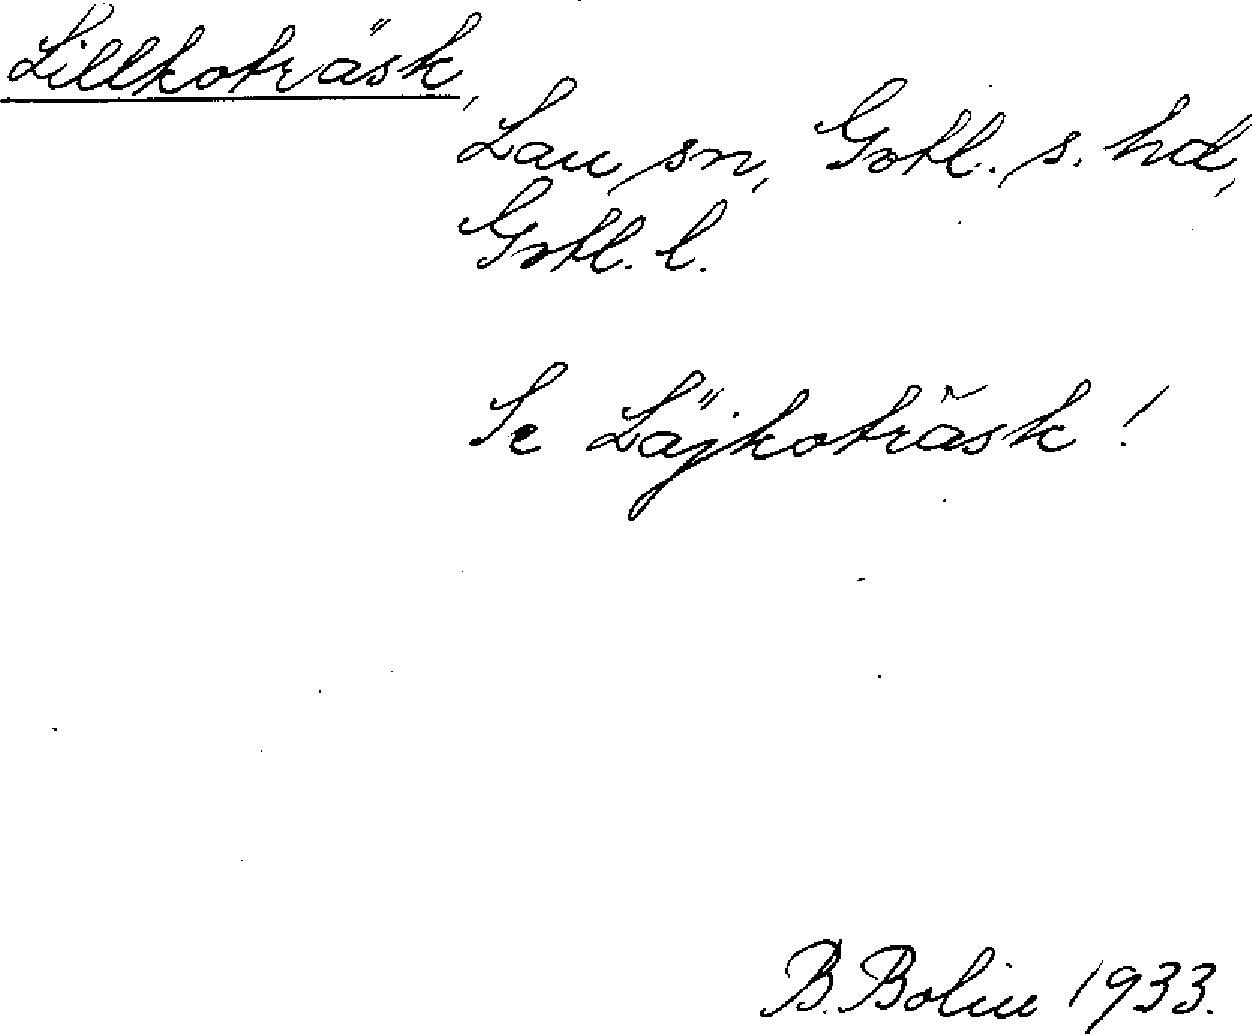 Lillkoträsk,
Lau sn, Gotl. s. hd,
Gotl. l.
Se Läjkoträsk!
B. Bolin 1933.